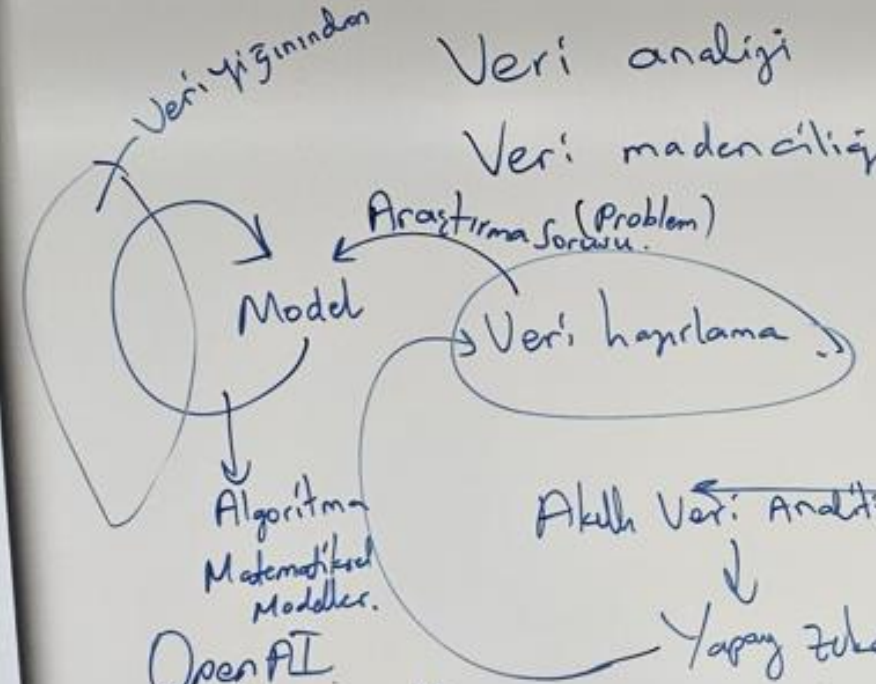 Veri yığınından
Veri analizi
Veri madenciliğ
Araştırma Sorusu. (Problem)
Model
Veri hazırlama
Algoritma
Matematiksel
Modeller.
Akıllı Veri Analiti
Yapay Zeka
OpenAI